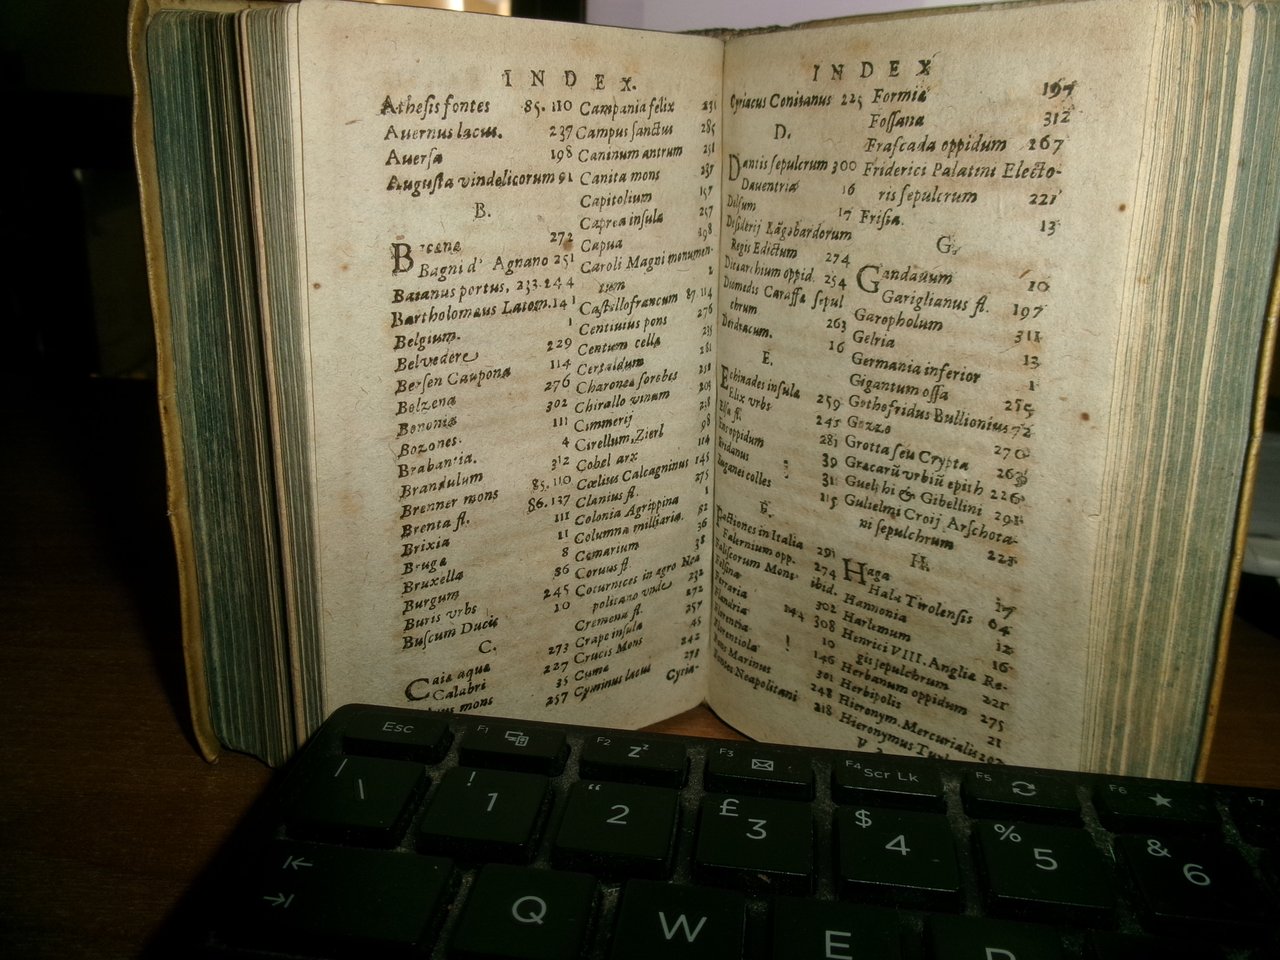 INDEX.
Athesis fontes 85. 110
Auernus lacus. 237
Auersa 198
Augusta vindelicorum 91
B.
Bagni d' Agnano 251
Baianus portus, 233. 244
Bartholomæus Latom. 141
Belgium. 1
Belvedere 229
Bersen Caupona 114
Bolzena 276
Bononia 302
Bozones. 111
Brabantia. 4
Brandulum 312
Brenner mons 85. 110
Brenta fl. 86. 137
Brixia 111
Bruga 11
Bruxella 8
Burgum 86
Buris vrbs 245
Buscum Ducis 10
C.
Caia aqua 273
Calabri 227
mons 35
257
Campania felix 231
Campus sanctus 285
Caninum antrum 251
Canita mons 237
Capitolium 157
Caprea insula 257
Capua 198
Caroli Magni monumen-
tum 2
Castellofrancum 87. 114
Centinius pons 276
Centum cellæ 235
Certaldum 281
Charoneæ scrobes 251
Chirallo vinum
Cimmerij
Cirellum, Zierl 98
Cobel arx 114
Cœlius Calcagninus 145
Clanius fl. 275
Colonia Agrippina 1
Columna milliaria. 82
Comarium 36
Coruus fl. 38
Coturnices in agro Nea
politano vnde 232
Cremera fl. 272
Crape insula 257
Crucis Mons 45
Cuma 242
Cyminus lacus 278
Cyria-
INDEX
Cyriacus Conitanus 225
D.
Dantis sepulcrum 300
Dauentria 16
Delfum 17
Desiderij Lãgobardorum
Regis Edictum 274
Dicæarchium oppid. 254
Diomedis Caraffæ sepul
chrum 263
Dordracum. 16
E.
Echinades insulæ 259
Elix vrbs 245
Elsa fl. 281
oppidum 39
Eridanus 31
Euganei colles 115
F.
Factiones in Italia 291
Falernium opp. 274
Faliscorum Mons ibid.
Felsina 302
Ferraria 144 308
Flandria 10
Florentia 146
Florentiola 301
Fons Marinus 248
Fontes Neapolitani 218
Formia 197
Fossana 312
Frascada oppidum 267
Friderici Palatini Electo-
ris sepulcrum 221
Frisia. 13
G.
Gandauum 10
Gariglianus fl. 197
Garopholum 311
Gelria 13
Germania inferior 1
Gigantum ossa 255
Gothofridus Bullionius 72
Gozzo 270
Grotta seu Crypta 263
Græcarũ vrbiũ epith 226
Guelphi & Gibellini 291
Gulielmi Croij Arschota-
ni sepulchrum 221
H.
Haga 17
Hala Tirolensis 64
Hannonia 12
Harlemum 16
Henrici VIII. Angliæ Re-
gis sepulchrum 221
Herbanum oppidum 275
Herbipolis 21
Hieronym. Mercurialis 202
Hieronymus
Esc F1 F2 Zz F3 F4 Scr Lk F5 F6 F7
| \ ! 1 " 2 £ 3 $ 4 % 5 & 6
Q W E R